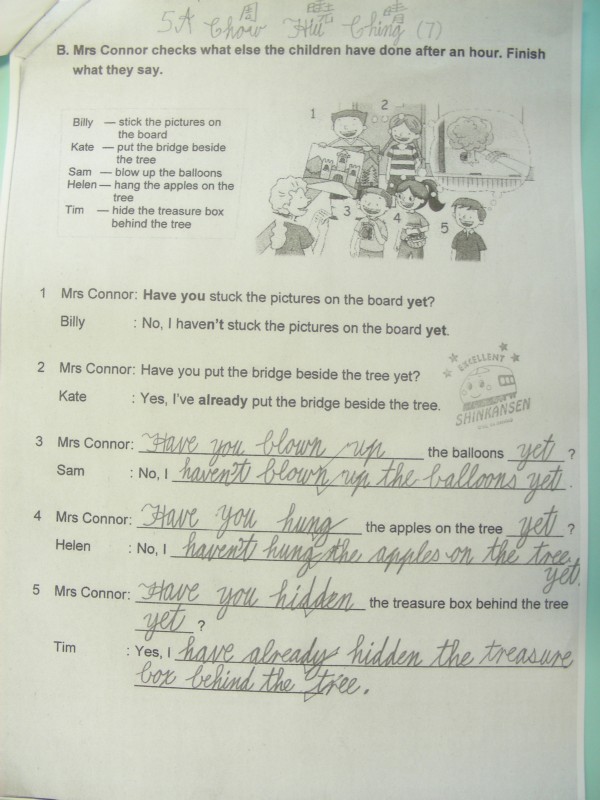 5A Chow 周 Hiu 曉 Ching 晴 (7)
B. Mrs Connor checks what else the children have done after an hour. Finish
what they say.
Billy — stick the pictures on
the board
Kate — put the bridge beside
the tree
Sam — blow up the balloons
Helen — hang the apples on the
tree
Tim — hide the treasure box
behind the tree
1
2
3
4
5
1 Mrs Connor: Have you stuck the pictures on the board yet?
Billy : No, I haven't stuck the pictures on the board yet.
2 Mrs Connor: Have you put the bridge beside the tree yet?
Kate : Yes, I've already put the bridge beside the tree.
EXCELLENT
SHINKANSEN
3 Mrs Connor: Have you blown up the balloons yet ?
Sam : No, I haven't blown up the balloons yet .
4 Mrs Connor: Have you hung the apples on the tree yet ?
Helen : No, I haven't hung the apples on the tree
yet.
5 Mrs Connor: Have you hidden the treasure box behind the tree
yet ?
Tim : Yes, I have already hidden the treasure
box behind the tree.